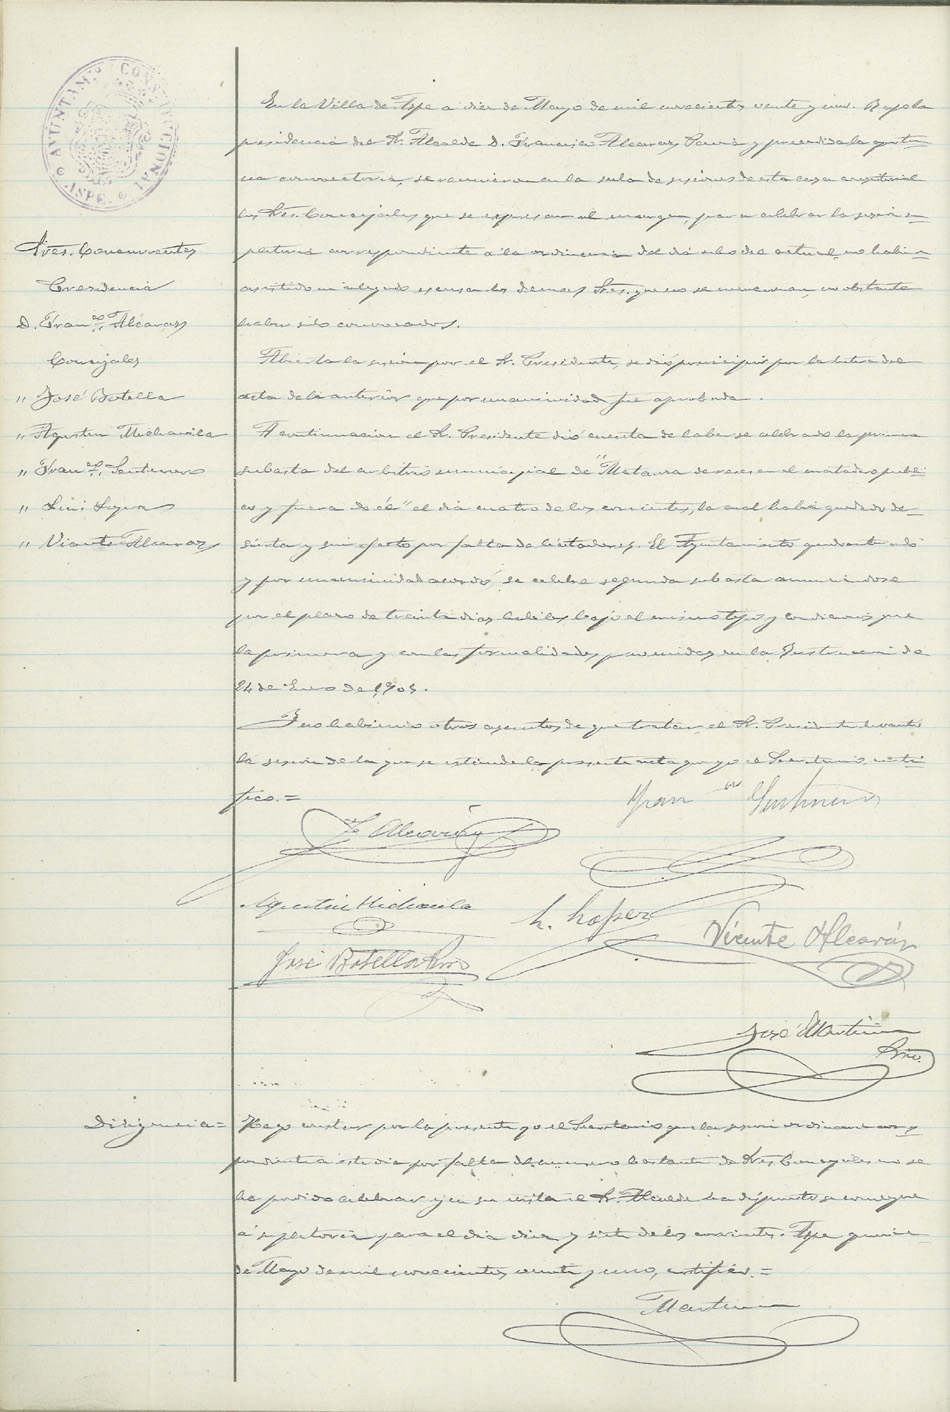 AYUNTAMTO CONSTITUCIONAL ASPE
En la Villa de Aspe a diez de Mayo de mil novecientos veinte y uno. Bajo la
presidencia del Sr. Alcalde D. Francisco Alcaraz y precedida la oportu-
na convocatoria, se reunieron en la sala de sesiones de esta casa consistorial
los Sres. Concejales que se expresan al margen, para celebrar la sesion su-
pletoria correspondiente a la ordinaria del dia ocho del actual, no habien
asistido ni alegado escusa los demas Sres. que no se mencionan, no obstante
haber sido convocados.
Abierta la sesion por el Sr. Presidente, se dió principio por la lectura del
acta de la anterior que por unanimidad fue aprobada.
A continuacion el Sr. Presidente dió cuenta de haberse celebrado la primera
subasta del arbitrio municipal de "Matanza de reses en el matadero publi-
co y fuera de él" el dia cuatro de los corrientes, la cual había quedado de-
sierta y sin efecto por falta de licitadores. El Ayuntamiento quedó enterado
y por unanimidad acordó se celebre segunda subasta anunciandose
por el plazo de treinta dias habiles bajo el mismo tipo y condiciones que
la primera y con las formalidades prevenidas en la Instruccion de
24 de Enero de 1905.
Y no habiendo otros asuntos de que tratar, el Sr. Presidente levantó
la sesion de la que se extiende la presente acta que yo el Secretario, certi-
fico.=
Sres. Concurrentes
Presidencia
D. Franco. Alcaraz
Concejales
" José Botella
" Agustin Michavila
" Franco. Santonero
" Luis Lopez
" Vicente Alcaraz
Fran co
F Alcaraz
Agustin Michavila
L. Lopez
Vicente Alcaráz
José Botella
José Martinez
Srio.
Diligencia=
Hago constar por la presente yo el Secretario que la sesion ordinaria corres-
pondiente a este dia por falta de numero bastante de Sres. Concejales no se
ha podido celebrar y en su vista el Sr. Alcalde ha dispuesto se convoque
á supletoria para el dia diez y siete de los corrientes. Aspe quince
de Mayo de mil novecientos veinte y uno, certifico.=
Martinez